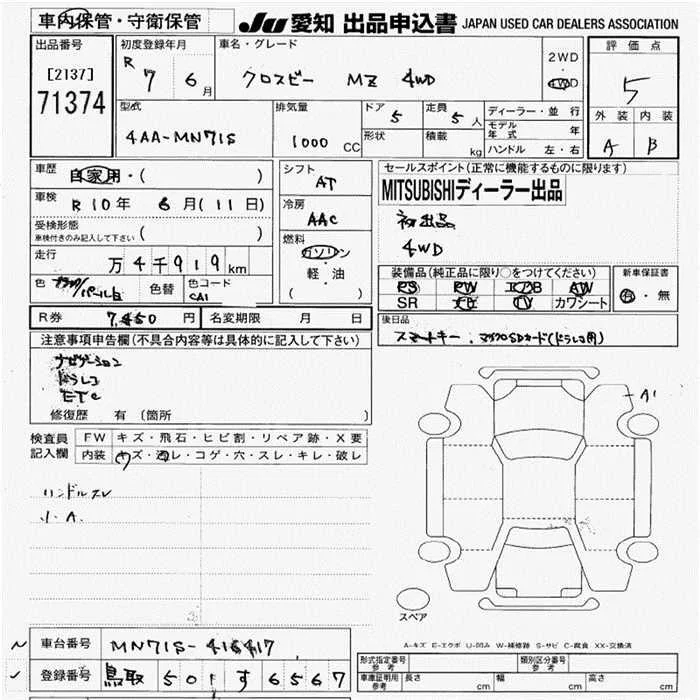 車内保管・守衛保管
JU 愛知 出品申込書 JAPAN USED CAR DEALERS ASSOCIATION
出品番号
[2137]
71374
初度登録年月
R 7 6月
車名・グレード
クロスビー MZ 4WD
2WD
・
4WD
評価点
5
外装 内装
A B
型式
4AA-MN71S
排気量
1000 CC
ドア 5
形状
定員 5人
積載 kg
ディーラー・並行
モデル年式 年
ハンドル 左・右
車歴
自家用・( )
車検
R 10年 6月(11日)
受検形態
車検付きのみ記入して下さい ( )
走行
万4千919km
色 ブラック/パール白
色替
色コード
CA1
シフト
AT
冷房
AAC
燃料
ガソリン
軽・油
( )
セールスポイント(正常に機能するものに限ります)
MITSUBISHIディーラー出品
初出品
4WD
装備品(純正品に限り○をつけてください)
PS PW エアB AW
SR ナビ TV カワシート
新車保証書
有・無
R券 7,450円
名変期限 月 日
後日品
スマートキー: マイクロSDカード(ドラレコ用)
注意事項申告欄(不具合内容等は具体的に記入して下さい)
ナビゲーション
ドラレコ
ETC
修復歴 有(箇所 )
検査員
記入欄
FW キズ・飛石・ヒビ割・リペア跡・X要
内装 キズ・汚レ・コゲ・穴・スレ・キレ・破レ
ハンドルスレ
小A.
A1
スペア
A-キズ E-エクボ U-凹み W-補修跡 S-サビ C-腐食 XX-交換済
車台番号 MN71S-416417
登録番号 鳥取 501 す 6567
形式指定番号
参考
類別区分番号
参考
車庫証明用
参考
長さ cm
幅 cm
高さ cm